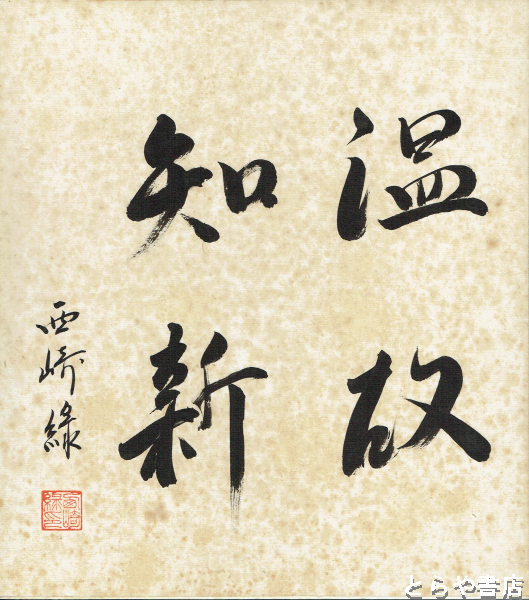 温故
知新
西崎緑
とらや書店